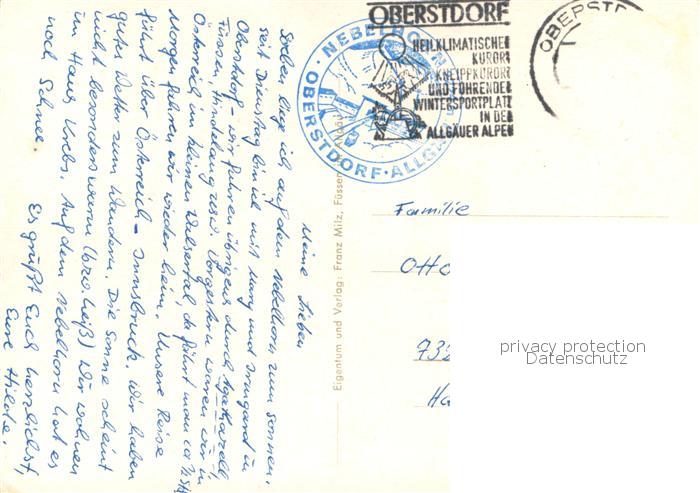 Meine Lieben
Soeben liege ich auf dem Nebelhorn zum Sonnen,
seit Dienstag bin ich mit Mary und Irmgard in
Oberstdorf – wir fuhren übrigens durch
Füssen, Hindelang usw. Vorgestern waren wir in
Österreich im kleinen Walsertal, da fährt man ca ½ Std
Morgen fahren wir wieder heim. Unsere Reise
führt über Österreich – Innsbruck. Wir haben
gutes Wetter zum Wandern. Die Sonne scheint
nicht besonders warm (bzw heiß) Wir wohnen
im Haus Krebs. Auf dem Nebelhorn hat es
noch Schnee.
Es grüßt Euch herzlichst,
Eure Hilde.
Eigentum und Verlag: Franz Milz, Füssen
NEBELHORN
OBERSTDORF · ALLGÄU
OBERSTDORF
HEILKLIMATISCHER
KURORT
KNEIPPKURORT
UND FÜHRENDER
WINTERSPORTPLATZ
IN DEN
ALLGÄUER ALPEN
OBERSTD
Familie
Otto
privacy protection
Datenschutz
Ha